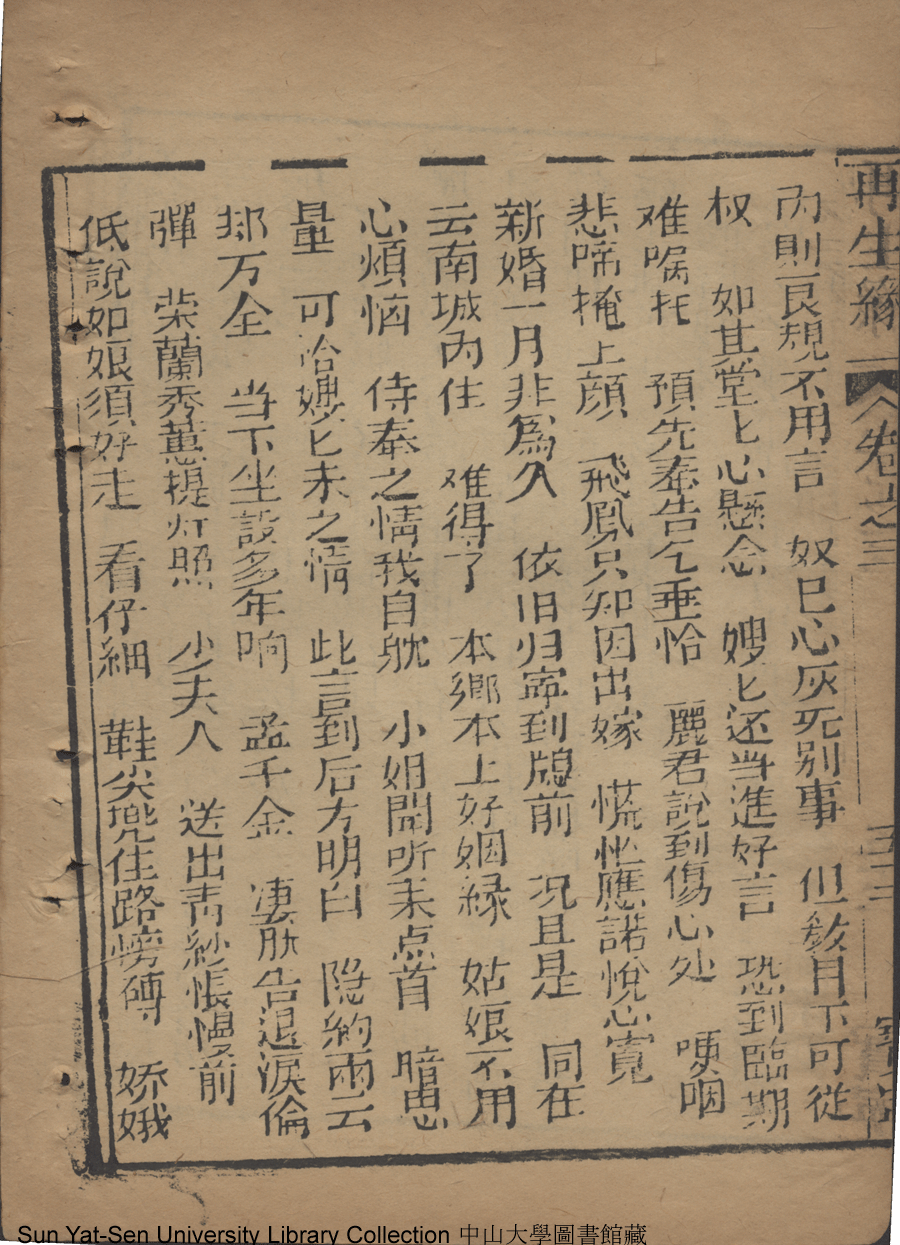 再生緣 卷之三 五十三
內則良規不用言 奴已心灰死别事 但教目下可從
权 如其堂匕心懸念 嫂匕还当進好言 恐到臨期
难嘱托 預先奉告乞垂恰 麗君說到傷心处 哽咽
悲啼掩上顔 飛鳳只知因出嫁 慌忙應諾悅心寬
新婚一月非爲久 依旧归寧到膝前 况且是 同在
云南城內住 难得了 本鄉本上好姻緣 姑娘不用
心煩恼 侍奉之情我自躭 小姐聞听末点首 暗思
量 可恰嫂匕未之情 此言到后方明白 隐約雨云
却万全 当下坐談多年响 孟千金 凄肰告退淚倫
彈 荣蘭秀蕙提灯照 少夫人 送出靑紗帳慢前
低說如娘須好走 看仔細 鞋尖兠住路傍磚 娇娥
Sun Yat-Sen University Library Collection 中山大學圖書館藏